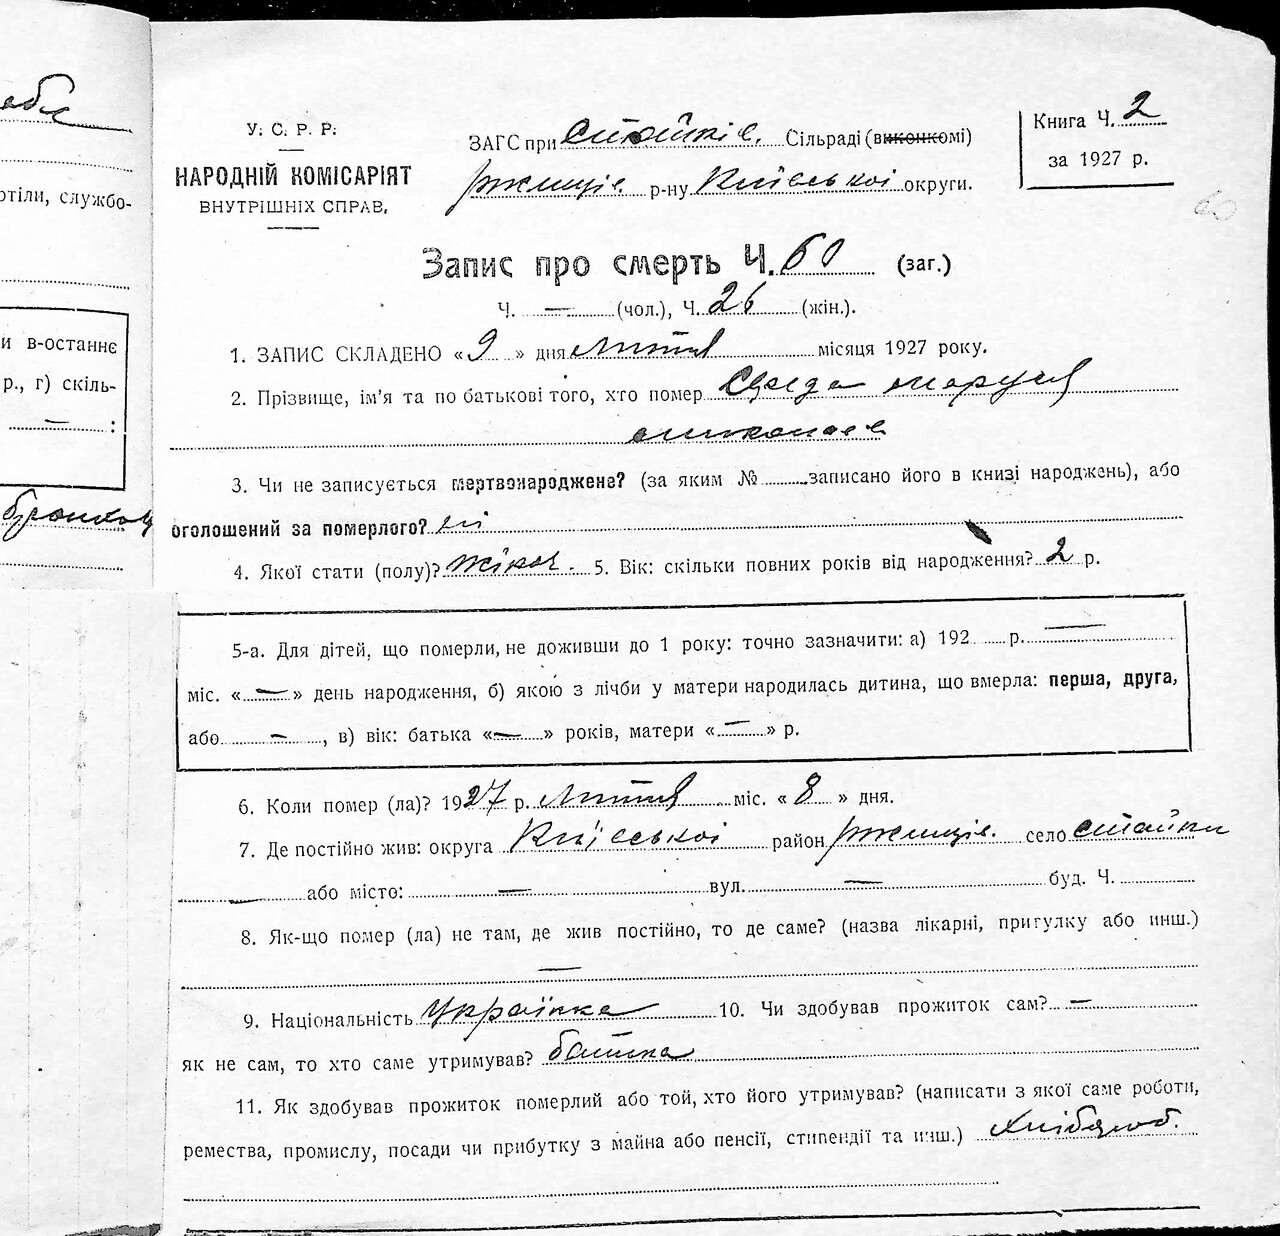 отіли, службо-
и в-останнє
р., г) скіль-
— :
У. С. Р. Р.
НАРОДНІЙ КОМІСАРІЯТ
ВНУТРІШНІХ СПРАВ,
ЗАГС при Стайків. Сільраді (виконкомі)
Ржищів. р-ну Київської округи.
Книга Ч. 2
за 1927 р.
60
Запис про смерть Ч. 60 (заг.)
Ч. — (чол.), Ч. 26 (жін.).
1. ЗАПИС СКЛАДЕНО «9» дня Лютня місяця 1927 року.
2. Прізвище, ім'я та по батькові того, хто помер Маруся
Миколаєв
3. Чи не записується мертвонароджене? (за яким № записано його в книзі народжень), або
оголошений за померлого? ні
4. Якої стати (полу)? жіноч. 5. Вік: скільки повних років від народження? 2 р.
5-а. Для дітей, що померли, не доживши до 1 року: точно зазначити: а) 192 р. —
міс. «—» день народження, б) якою з лічби у матери народилась дитина, що вмерла: перша, друга,
або — , в) вік: батька «—» років, матери «—» р.
6. Коли помер (ла)? 1927 р. Лютня міс. «8» дня.
7. Де постійно жив: округа Київської район Ржищів. село Стайки
— або місто: — вул. — буд. Ч.
8. Як-що помер (ла) не там, де жив постійно, то де саме? (назва лікарні, притулку або инш.)
—
9. Національність Українка 10. Чи здобував прожиток сам? —
як не сам, то хто саме утримував? батька
11. Як здобував прожиток померлий або той, хто його утримував? (написати з якої саме роботи,
ремества, промислу, посади чи прибутку з майна або пенсії, стипендії та инш.) Хліборob.